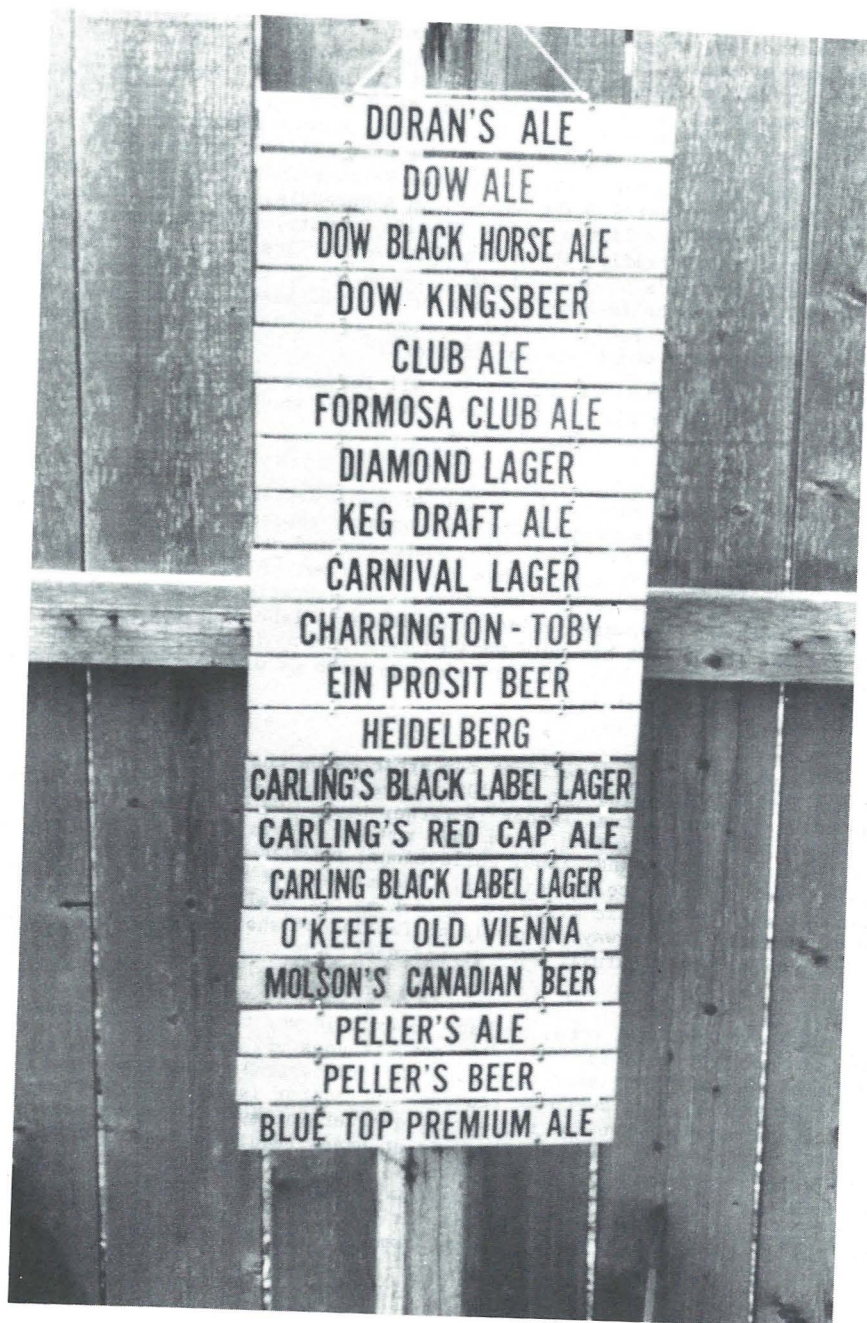 DORAN'S ALE
DOW ALE
DOW BLACK HORSE ALE
DOW KINGSBEER
CLUB ALE
FORMOSA CLUB ALE
DIAMOND LAGER
KEG DRAFT ALE
CARNIVAL LAGER
CHARRINGTON - TOBY
EIN PROSIT BEER
HEIDELBERG
CARLING'S BLACK LABEL LAGER
CARLING'S RED CAP ALE
CARLING BLACK LABEL LAGER
O'KEEFE OLD VIENNA
MOLSON'S CANADIAN BEER
PELLER'S ALE
PELLER'S BEER
BLUE TOP PREMIUM ALE